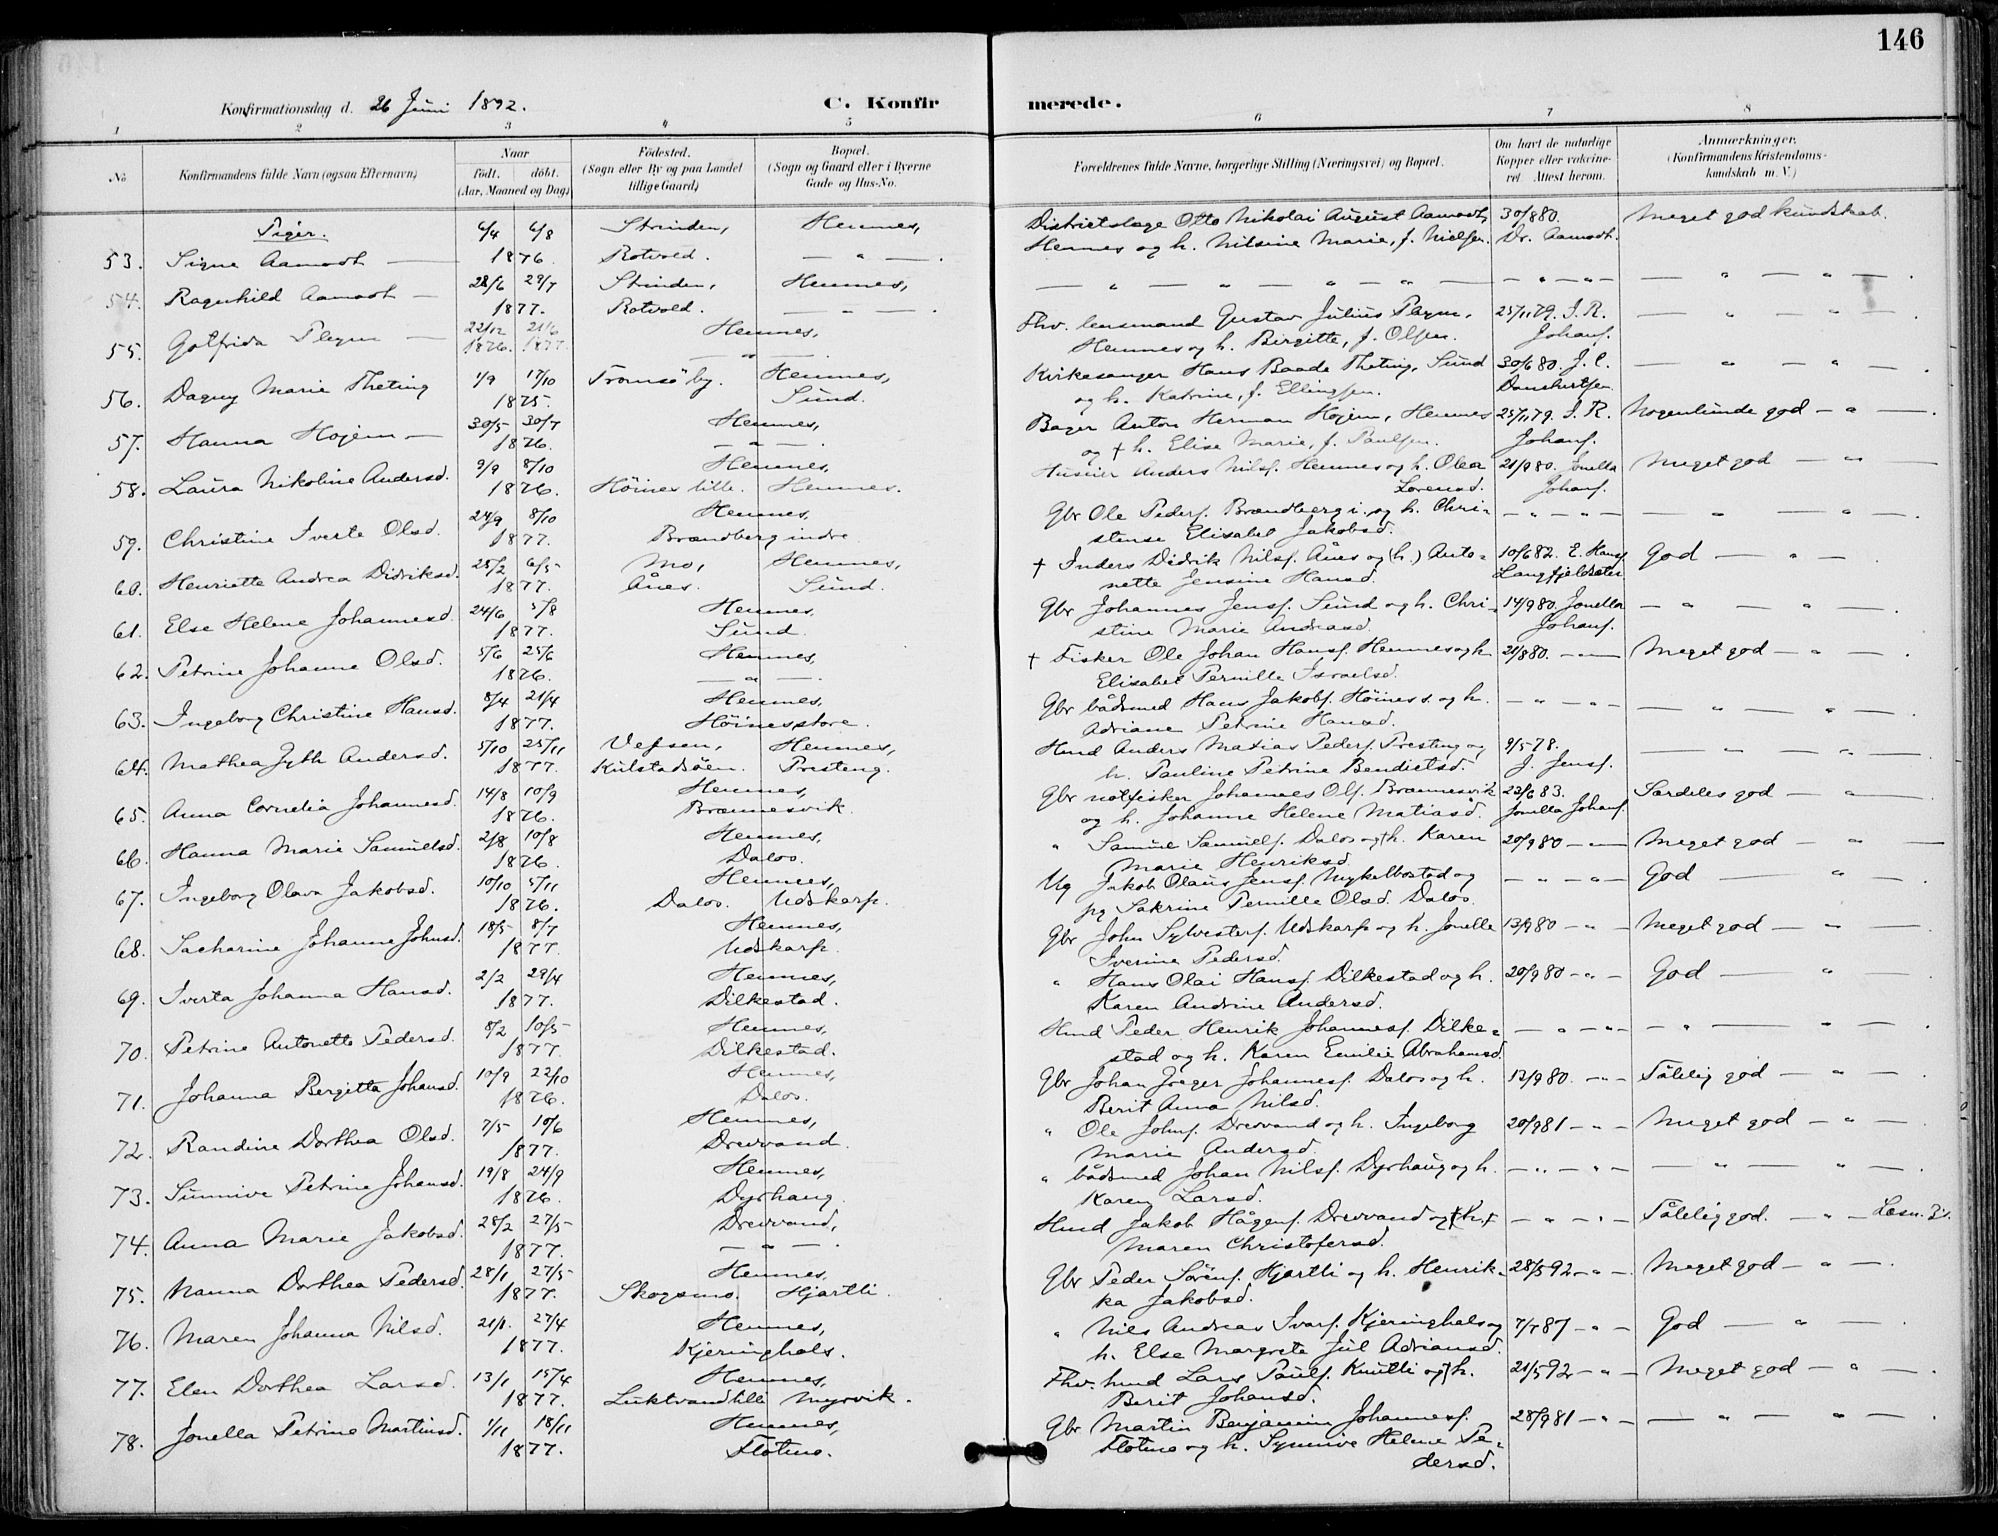 146
Konfirmationsdag d. 26 Juni 1892. C. Konfirmerede.
1 2 3 4 5 6 7 8
No Konfirmandens fulde Navn (ogsaa Efternavn) Naar født. døbt. (Aar, Maaned og Dag) Fødested. (Sogn eller By og paa Landet tillige Gaard) Bopæl. (Sogn og Gaard eller i Byerne Gade og Hus-No. Forældrenes fulde Navne, borgerlige Stilling (Næringsvei) og Bopæl. Om havt de naturlige Kopper eller vakcineret. Attest herom. Anmærkninger. (Konfirmandens Kristendomskundskab m. V.)
Piger.
53. Signe Aamodt — 6/4 6/8 1876. Strinden, Rotvold. Hemnes, — " — . Districtslæge Otto Nikolai August Aamodt, Hemnes og h. Nilsine Marie, f. Nielsen. 30/8 80. Dr. Aamodt. Meget god kundskab.
54. Ragnhild Aamodt — 28/6 29/7 1877. Strinden, Rotvold. Hemnes, — " — . — " — " — " — " — — " — " — — " — " — .
55. Gotfrida Pleym — 22/12 1876. 21/6 1877. Hemnes, — " — . Fhv. lensmand Gustav Julius Pleym, Hemnes og h. Birgitte, f. Olsen. 25/11 79. I. R. Johans. — " — " — .
56. Dagny Marie Theting 1/9 17/10 1875. Tromsø by. Hemnes, Sund. Kirkesanger Hans Baade Theting, Sund og h. Katrine, f. Ellingsen. 30/6 80. J. C. — " — " — .
57. Hanna Hojem — 30/5 30/7 1876. Hemnes, — " — . Bager Anton Herman Hojem, Hemnes og † h. Elise Marie, f. Paulsen. 25/11 79. I. R. Johans. Nogenlunde god — " — .
58. Laura Nikoline Andersd. 9/9 8/10 1876. Hemnes, Høines lille. Hemnes. Husmer Anders Nilss. Hemnes og h. Olea Lorensd. 21/9 80. Jonella Johans. Meget god — " —
59. Christine Iverte Olsd. 24/9 8/10 1877. Hemnes, Brændberg indre. Gbr Ole Peders. Brændberg i. og h. Christense Elisabet Jakobsd. — " — " — — " — " — .
60. Henriette Andrea Didriksd. 25/2 6/5 1877. Mo, Ånes. Hemnes, Sund. † Inders Didrik Nilss. Ånes og (h.) Antonette Jensine Hansd. 10/6 82. E. Hans. Langfjeldsæter God — " — .
61. Else Helene Johannesd. 24/6 5/8 1877. Hemnes, Sund. Gbr Johannes Jenss. Sund og h. Christine Marie Andreasd. 14/9 80. Jonella Johans. — " — " — .
62. Petrine Johanne Olsd. 5/6 25/6 1876. Hemnes, — " — . † Fisker Ole Johan Hanss. Hemnes og h. Elisabet Pernille Israelsd. 21/8 80. — " — Meget god — " — .
63. Ingeborg Christine Hansd. 8/4 21/4 1877. Hemnes, Høinesstore. Gbr bådsmed Hans Jakobs. Høines s. og h. Adriane Petrine Hansd. — " — " — — " — " — .
64. Mathea Jyth Andersd. 5/10 25/11 1877. Vefsen, Kulstadsøen. Hemnes, Presteng. Hmd Anders Matias Peders. Presteng og h. Pauline Petrine Bendietsd. 9/5 78. J. Jens. — " — " — .
65. Anna Cornelia Johannesd. 14/8 10/9 1876. Hemnes, Brænnesvik. Gbr notfisker Johannes Ols. Brænnesvik og h. Johanne Helene Matiasd. 22/6 83. Jonella Johans. Særdeles god — " — .
66. Hanna Marie Samuelsd. 2/8 10/8 1876. Hemnes, Dalos. " Samuel Samuels. Dalos og † h. Karen Marie Henriksd. 20/9 80 — " — Meget god — " —
67. Ingeborg Olava Jakobsd. 10/10 5/11 1876. Hemnes, Dalos. Udskarp. Ug Jakob Olaus Jenss. Mykelbostad og pg Sakrine Pernille Olsd. Dalos. — " — " — God — " — .
68. Sacharine Johanne Johnsd. 18/5 8/7 1877. Hemnes, Udskarp. Gbr John Sylvesters. Udskarp og h. Jonelle Iverine Pedersd. 13/9 80 — " — Meget god — " — .
69. Iverta Johanna Hansd. 2/2 29/4 1877. Hemnes, Dilkestad. " Hans Olai Hanss. Dilkestad og h. Karen Andrine Andersd. 20/9 80 — " — God — " —
70. Petrine Antonette Pedersd. 8/2 10/5 1877. Hemnes, Dilkestad. Hmd Peder Henrik Johanness. Dilkestad og h. Karen Emilie Abrahamsd. — " — " — — " — " — .
71. Johanna Bergitta Johansd. 10/9 22/10 1876. Hemnes, Dalos. Gbr Johan Jørger Johanness. Dalos og h. Berit Anna Nilsd. 13/9 80. — " — Tålelig god — " — .
72. Randine Dorthea Olsd. 7/5 10/6 1877. Hemnes, Drevvand. " Ole Johns. Drevvand og h. Ingeborg Marie Andersd. 20/9 81 — " — Meget god — " — .
73. Sunnive Petrine Johansd. 19/8 24/9 1876. Hemnes, Dyrhaug. " bådsmed Johan Nilss. Dyrhaug og h. Karen Larsd. — " — " — — " — " — .
74. Anna Marie Jakobsd. 28/2 27/5 1877. Drevvand, — " — . Hmd Jakob Hågens. Drevvand og † h. † Maren Christofersd. — " — " — Tålelig god. — " — Læsn. 3:.
75. Nanna Dorthea Pedersd. 28/1 27/5 1877. Hemnes, Skogsmo. Hjartli. Gbr Peder Sørens. Hjartli og h. Henrikka Jakobsd. 28/5 92 — " — Meget god — " — .
76. Maren Johanna Nilsd. 21/1. 27/4 1877. Hemnes, Kjeringhals. " Nils Andreas Ivars. Kjeringhals og h. Else Margrete Jul Adriansd. 7/7 87 — " — God — " — .
77. Elen Dorthea Larsd. 13/1 15/4 1877. Hemnes, Luktvandtlille Myrvik. Fhv. hmd Lars Pauls. Knutli og † h. Berit Johansd. 21/5 92 — " — Meget god — " — .
78. Jonella Petrine Martinsd. 1/11 18/11 1877. Hemnes, Flotmo. Gbr Martin Benjamin Johanness. Flotmo og h. Synnive Helene Pedersd. 28/9 81 — " — — " — " — .